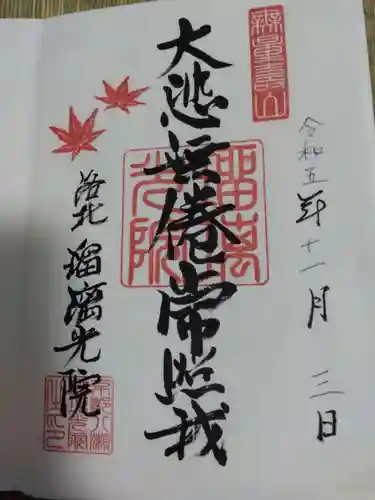 無量壽山
令和五年十一月三日
大悲無倦常照我
瑠璃光院
洛北 瑠璃光院